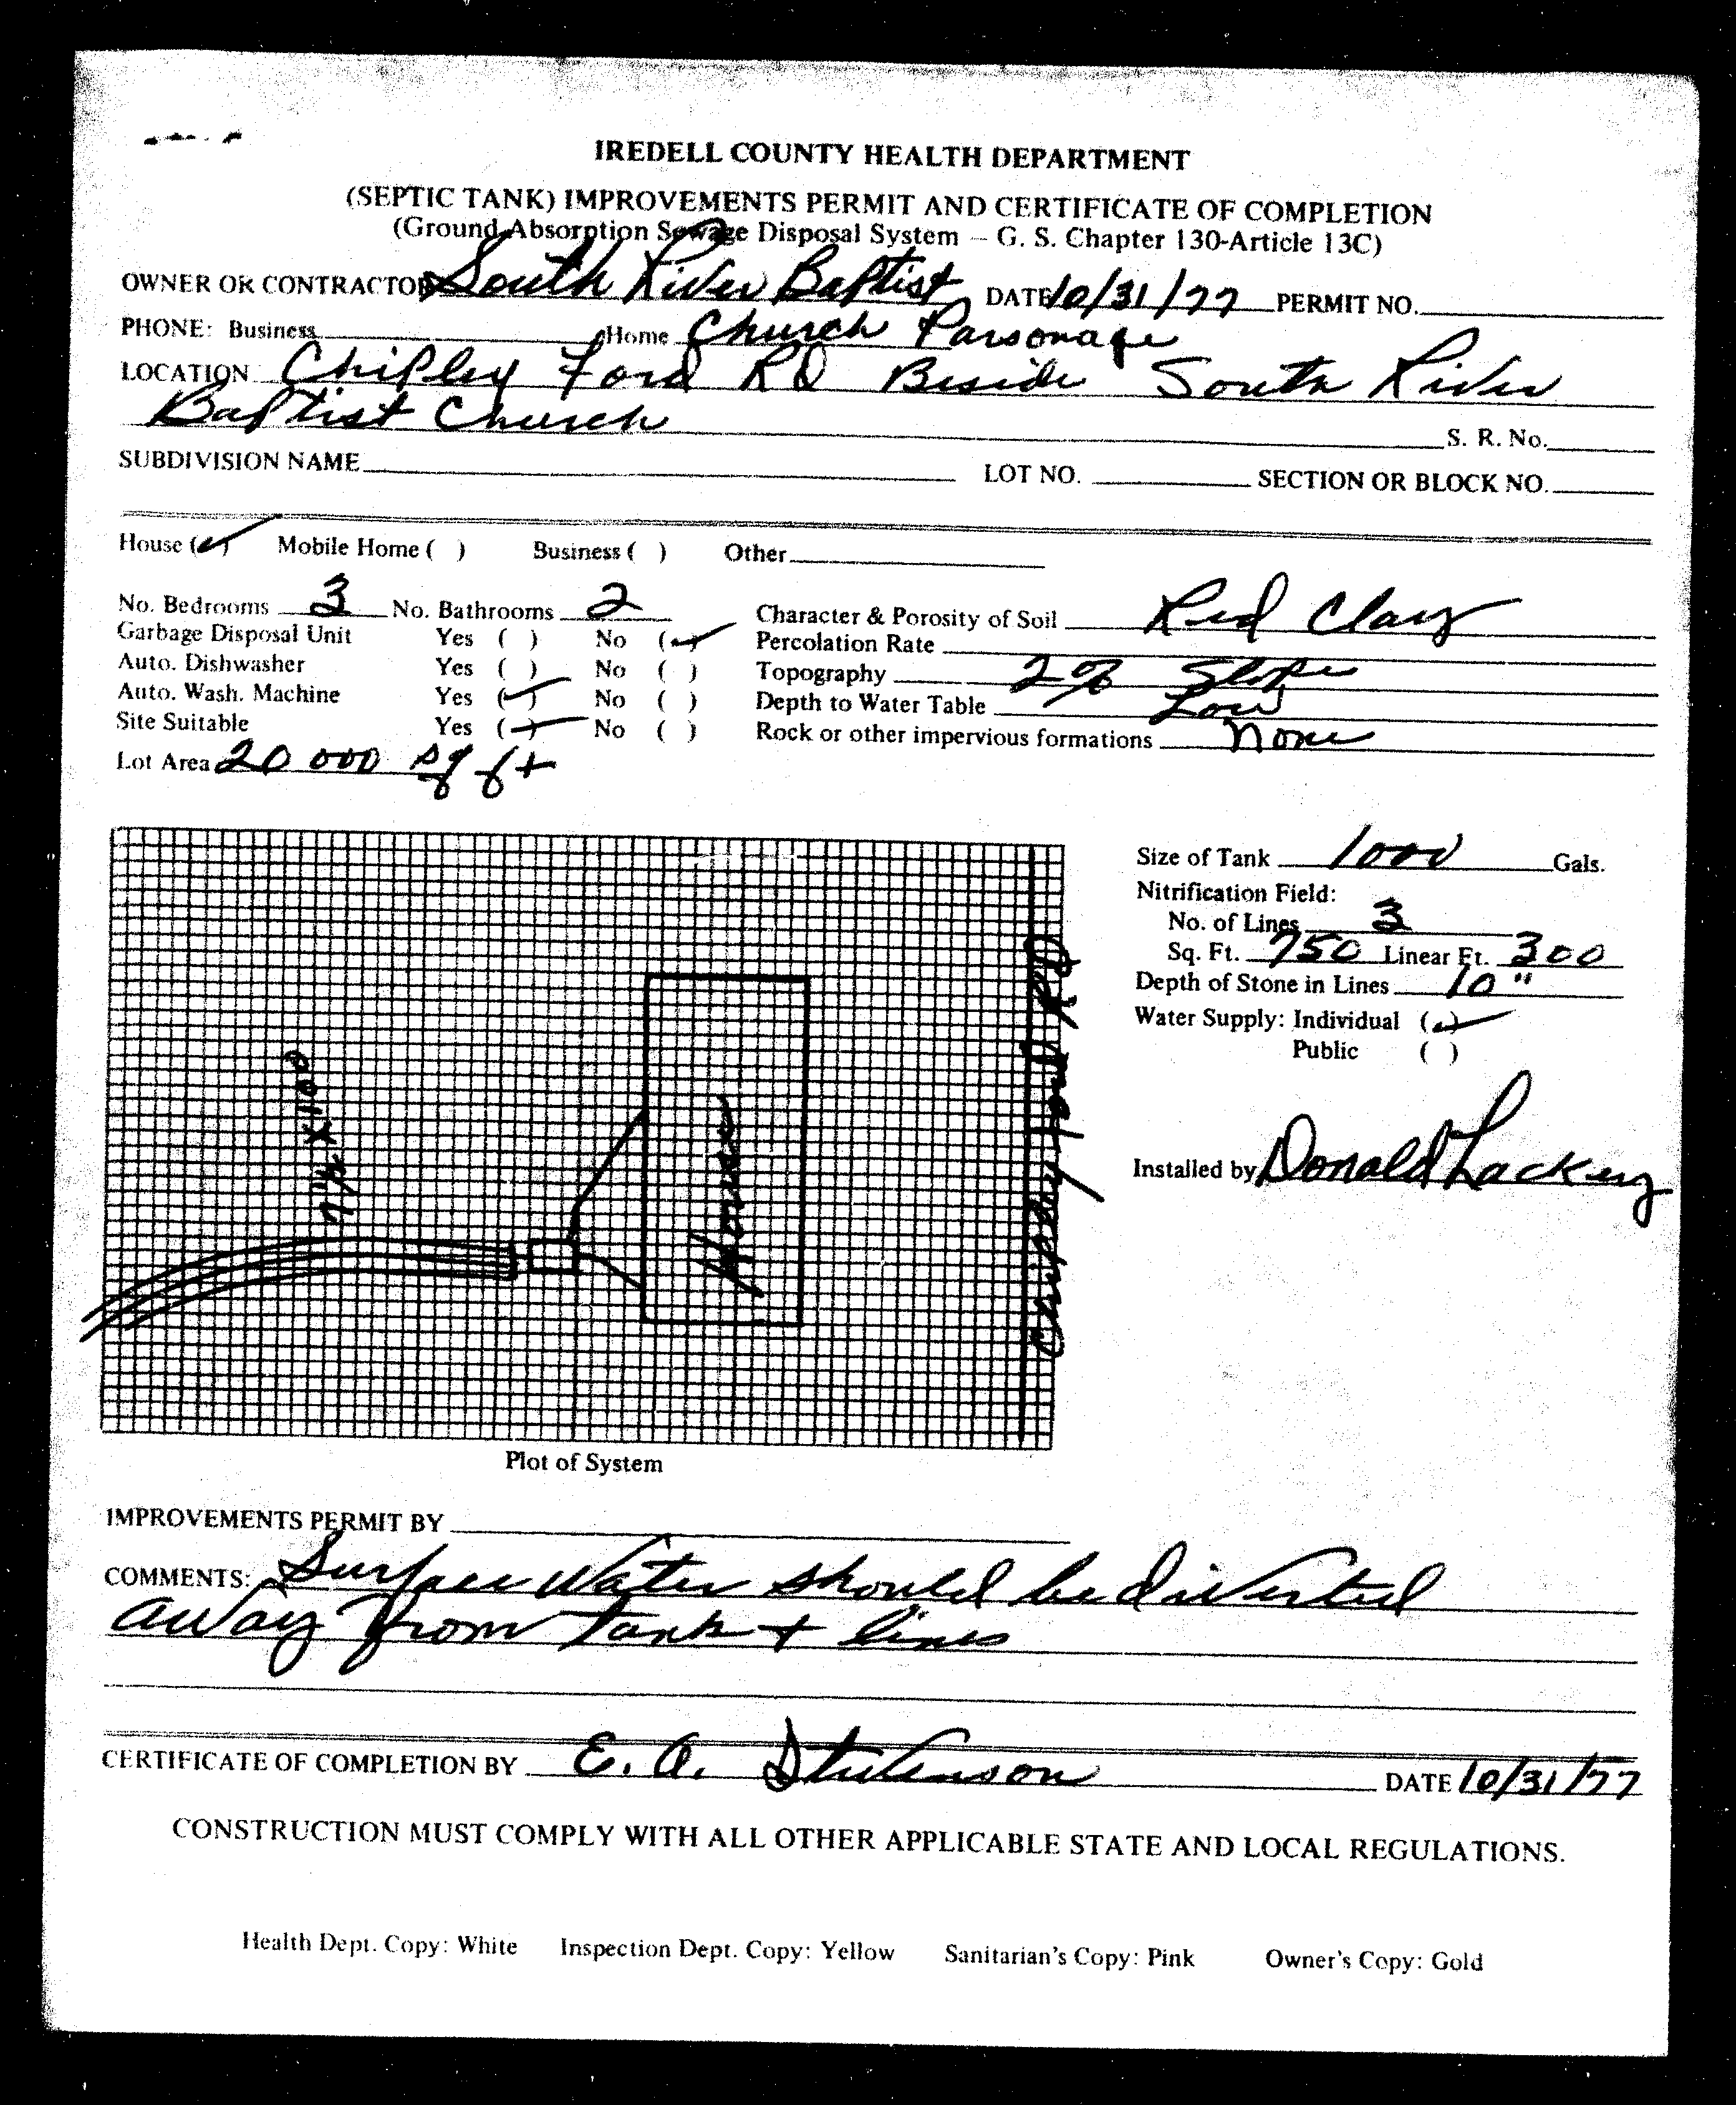 IREDELL COUNTY HEALTH DEPARTMENT
(SEPTIC TANK) IMPROVEMENTS PERMIT AND CERTIFICATE OF COMPLETION
(Ground Absorption Sewage Disposal System – G. S. Chapter 130-Article 13C)
OWNER OR CONTRACTOR South River Baptist DATE 10/31/77 PERMIT NO.
PHONE: Business Home Church Parsonage
LOCATION Chipley Ford RD Beside South River
Baptist Church S. R. No.
SUBDIVISION NAME LOT NO. SECTION OR BLOCK NO.
House (✓) Mobile Home ( ) Business ( ) Other
No. Bedrooms 3 No. Bathrooms 2 Character & Porosity of Soil Red Clay
Garbage Disposal Unit Yes ( ) No (✓) Percolation Rate
Auto. Dishwasher Yes ( ) No ( ) Topography 2% Slope
Auto. Wash. Machine Yes (✓) No ( ) Depth to Water Table Low
Site Suitable Yes (✓) No ( ) Rock or other impervious formations None
Lot Area 20 000 sq ft
Size of Tank 1000 Gals.
Nitrification Field:
No. of Lines 3
Sq. Ft. 750 Linear Ft. 300
Depth of Stone in Lines 10"
Water Supply: Individual (✓)
Public ( )
Installed by Donald Lackey
House
Chipley Ford Rd
Plot of System
IMPROVEMENTS PERMIT BY
COMMENTS: Surface Water should be diverted
away from tank + lines
CERTIFICATE OF COMPLETION BY E. A. Stevenson DATE 10/31/77
CONSTRUCTION MUST COMPLY WITH ALL OTHER APPLICABLE STATE AND LOCAL REGULATIONS.
Health Dept. Copy: White Inspection Dept. Copy: Yellow Sanitarian's Copy: Pink Owner's Copy: Gold